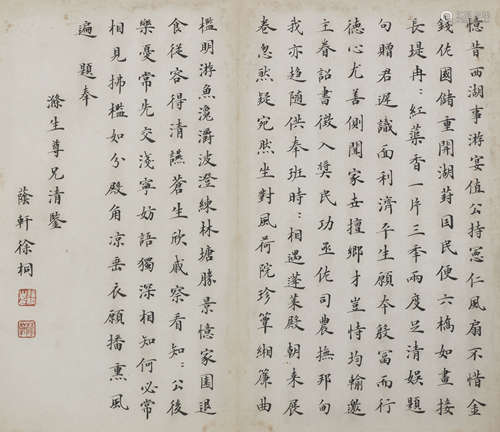 憶昔西湖事游宴值公持憲扃不惜金
錢佐國儲重開湖葑因民便六橋如畫接
長堤冉冉紅蕖香一片三年兩度足清娛題
句贈君遲識面利濟平生願奉殷富而行
德心尤善側聞家岳擅鄉才豈恃均輸邀
主眷詔書徵入獎民功丞佐司農撫邦甸
我亦趨隨供奉班時時相遇蓬萊殿朝來展
卷忽然疑宛然坐對風荷院珍簟緗簾曲
檻明游魚瀺灂波澄練林塘勝景憶家園退
食從容得清讌蒼生欣戚察看知知公後
樂憂常先交淺寧妨語獨深相知何必常
相見拂檻如分殿角涼垂衣願播熏風
遍 題奉
滌生尊兄清鑒
蔭軒徐桐